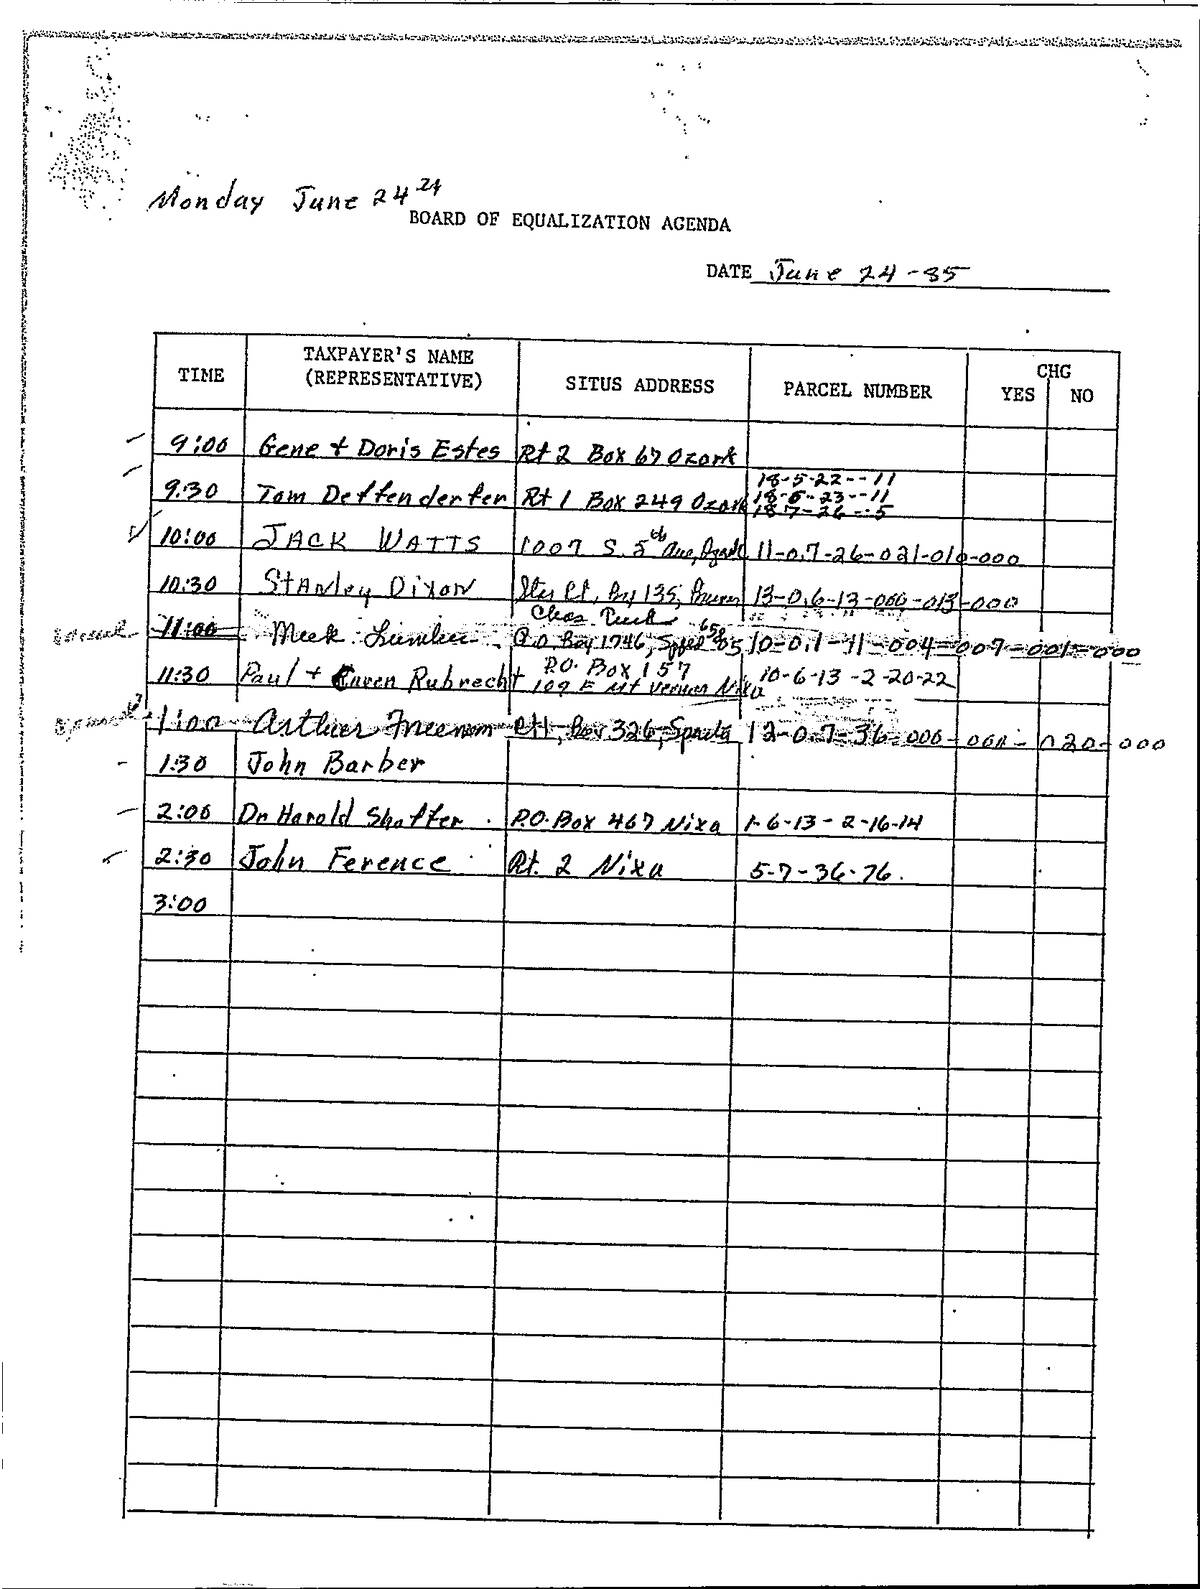 Monday June 24
BOARD OF EQUALIZATION AGENDA
DATE June 24-85
TIME TAXPAYER'S NAME (REPRESENTATIVE) SITUS ADDRESS PARCEL NUMBER CHG YES NO
9:00 Gene + Doris Estes Rt 2 Box 67 Ozark
18-5-22--11
9:30 Tom Deffenderfer Rt 1 Box 249 Ozark 18-6-23--11
18-7-26--5
10:00 JACK WATTS 1007 S. 5th Ave, Ozark 11-0.7-26-021-010-000
10:30 Stanley Dixon Box 135, 13-0.6-13-000-013-000
Chas.
11:00 Meek Lumber P.O. Box 1746, Spfed 65805 10-0.1-11-004-007-001-000
P.O. Box 157
11:30 Paul + Rubrecht 109 E Mt Vernon Nixa 10-6-13-2-20-22
1:00 Arthur Freeman Rt 1, Box 326, Sparta 12-0.7-36-000-000-020-000
1:30 John Barber
2:00 Dr Harold Shaffer P.O. Box 467 Nixa 1-6-13-2-16-14
2:30 John Ference Rt. 2 Nixa 5-7-36-76.
3:00